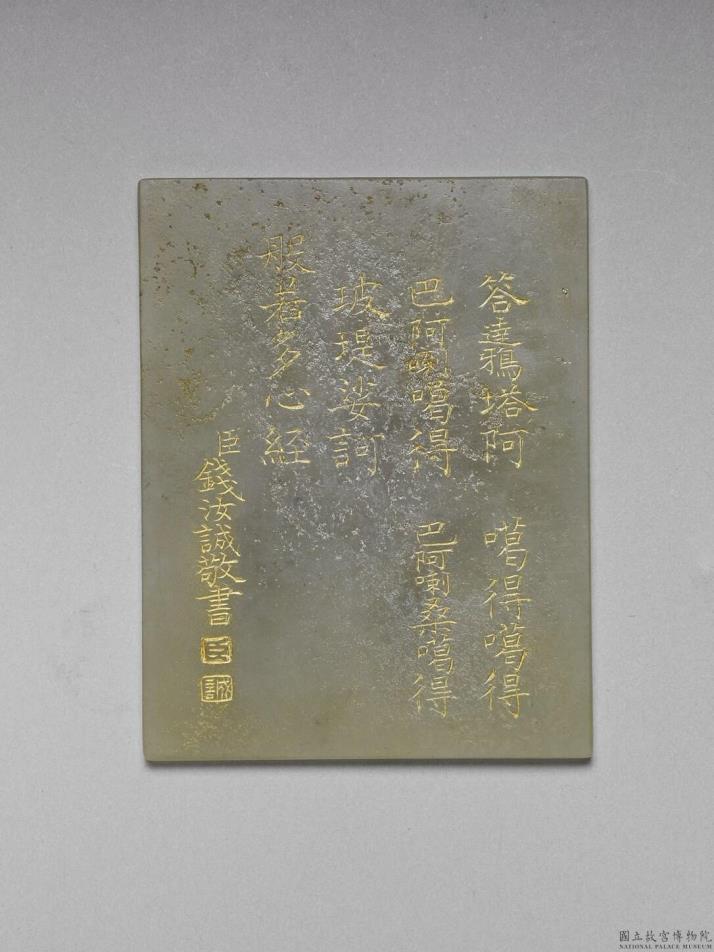 答達鴉塔阿 噶得噶得
巴阿喇噶得 巴阿喇桑噶得
玻瑅娑訶
般若多心經
臣錢汝誠敬書
臣
誠
國立故宮博物院
NATIONAL PALACE MUSEUM